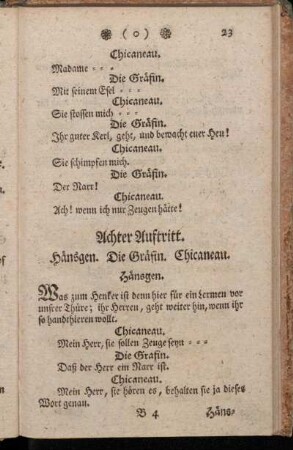 ❀ ( o ) ❀ 23
Chicaneau.
Madame - - -
Die Gräfin.
Mit seinem Esel - - -
Chicaneau.
Sie stossen mich - - -
Die Gräfin.
Ihr guter Kerl, geht, und bewacht euer Heu!
Chicaneau.
Sie schimpfen mich.
Die Gräfin.
Der Narr!
Chicaneau.
Ach! wenn ich nur Zeugen hätte!
Achter Auftritt.
Hänsgen. Die Gräfin. Chicaneau.
Hänsgen.
Was zum Henker ist denn hier für ein Lermen vor
unsrer Thüre; ihr Herren, geht weiter hin, wenn ihr
so handthieren wollt.
Chicaneau.
Mein Herr, sie sollen Zeuge seyn - - -
Die Gräfin.
Daß der Herr ein Narr ist.
Chicaneau.
Mein Herr, sie hören es, behalten sie ja dieses
Wort genau.
B 4 Häns-